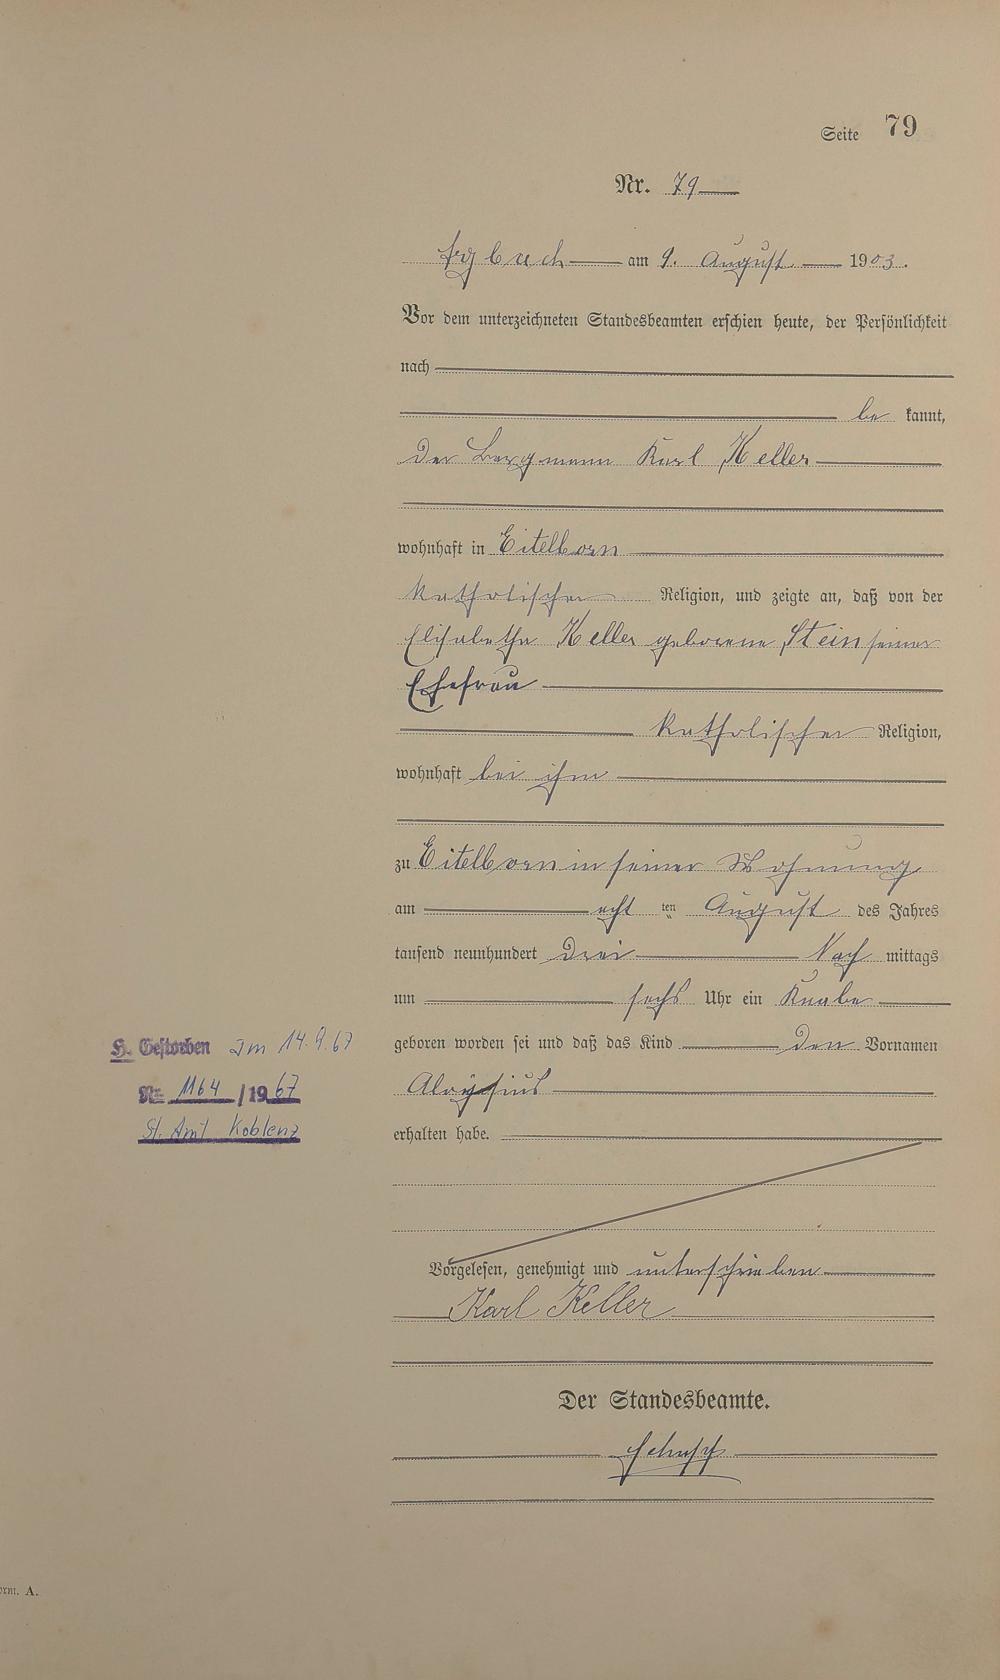 Seite 79
Nr. 79
Arzbach am 9. August 1903.
Vor dem unterzeichneten Standesbeamten erschien heute, der Persönlichkeit
nach
be kannt,
der Bergmann Karl Keller
wohnhaft in Eitelborn
katholischer Religion, und zeigte an, daß von der
Elisabetha Keller geborene Stein seiner
Ehefrau
katholischer Religion,
wohnhaft bei ihm
zu Eitelborn in seiner Wohnung
am acht ten August des Jahres
tausend neunhundert drei Nach mittags
um sechs Uhr ein Knabe
geboren worden sei und daß das Kind den Vornamen
Aloysius
erhalten habe.
Vorgelesen, genehmigt und unterschrieben
Karl Keller
Der Standesbeamte.
H. Gestorben am 14.9.67
Nr. 1164 /1967
St. Amt Koblenz
orm. A.